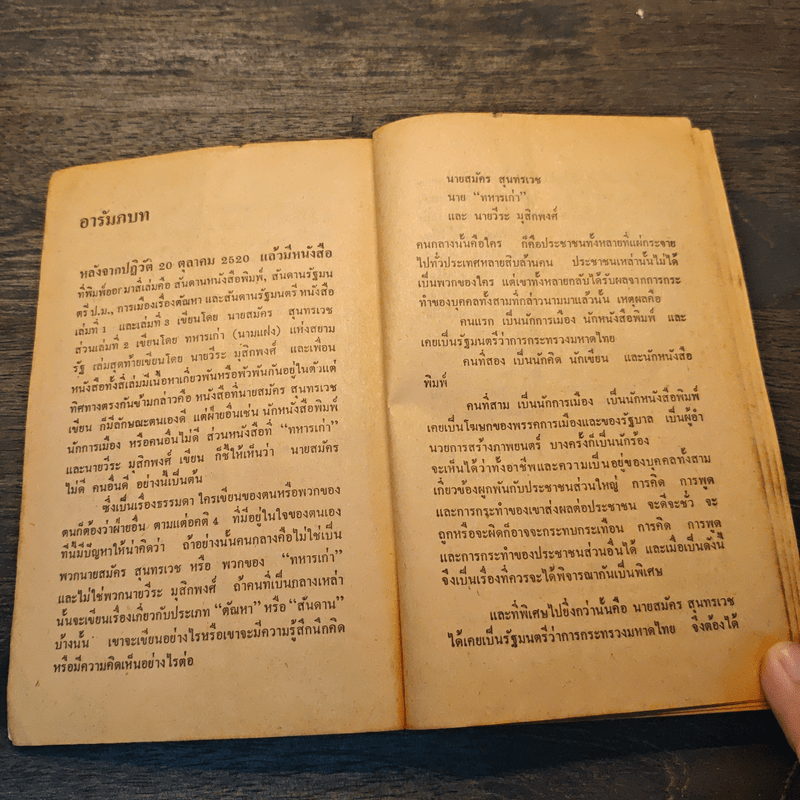 อารัมภบท
หลังจากปฏิวัติ 20 ตุลาคม 2520 แล้วมีหนังสือ
ที่พิมพ์ออกมาสี่เล่มคือ สันดานหนังสือพิมพ์, สันดานรัฐมน
ตรี ป.ม., การเมืองเรื่องตัณหา และสันดานรัฐมนตรี หนังสือ
เล่มที่ 1 และเล่มที่ 3 เขียนโดย นายสมัคร สุนทรเวช
ส่วนเล่มที่ 2 เขียนโดย ทหารเก่า (นามแฝง) แห่งสยาม
รัฐ เล่มสุดท้ายเขียนโดย นายวีระ มุสิกพงศ์ และเพื่อน
หนังสือทั้งสี่เล่มมีเนื้อหาเกี่ยวพันหรือพัวพันกันอยู่ในตัวแต่
ทิศทางตรงกันข้ามกล่าวคือ หนังสือที่นายสมัคร สุนทรเวช
เขียน ก็มีลักษณะตนเองดี แต่ผ้ายอื่นเช่น นักหนังสือพิมพ์
นักการเมือง หรือคนอื่นไม่ดี ส่วนหนังสือที่ “ทหารเก่า”
และนายวีระ มุสิกพงศ์ เขียน ก็ชี้ให้เห็นว่า นายสมัคร
ไม่ดี คนอื่นดี อย่างนี้เป็นต้น
ซึ่งเป็นเรื่องธรรมดา ใครเขียนของตนหรือพวกของ
ตนก็ต้องว่าผ้ายอื่น ตามแต่อคติ 4 ที่มีอยู่ในใจของตนเอง
ที่นี้มีปัญหาให้น่าคิดว่า ถ้าอย่างนั้นคนกลางคือไม่ใช่เป็น
พวกนายสมัคร สุนทรเวช หรือ พวกของ “ทหารเก่า”
และไม่ใช่พวกนายวีระ มุสิกพงศ์ ถ้าคนที่เป็นกลางเหล่า
นั้นจะเขียนเรื่องเกี่ยวกับประเภท “ตัณหา” หรือ “สันดาน”
บ้างนั้น เขาจะเขียนอย่างไรหรือเขาจะมีความรู้สึกนึกคิด
หรือมีความคิดเห็นอย่างไรต่อ
นายสมัคร สุนทรเวช
นาย “ทหารเก่า”
และ นายวีระ มุสิกพงศ์
คนกลางนั้นคือใคร ก็คือประชาชนทั้งหลายที่แผ่กระจาย
ไปทั่วประเทศหลายสิบล้านคน ประชาชนเหล่านั้นไม่ได้
เป็นพวกของใคร แต่เขาทั้งหลายกลับได้รับผลจากการกระ
ทำของบุคคลทั้งสามที่กล่าวนามมาแล้วนั้น เหตุผลคือ
คนแรก เป็นนักการเมือง นักหนังสือพิมพ์ และ
เคยเป็นรัฐมนตรีว่าการกระทรวงมหาดไทย
คนที่สอง เป็นนักคิด นักเขียน และนักหนังสือ
พิมพ์
คนที่สาม เป็นนักการเมือง เป็นนักหนังสือพิมพ์
เคยเป็นโฆษกของพรรคการเมืองและของรัฐบาล เป็นผู้อำ
นวยการสร้างภาพยนตร์ บางครั้งก็เป็นนักร้อง
จะเห็นได้ว่าทั้งอาชีพและความเป็นอยู่ของบุคคลทั้งสาม
เกี่ยวข้องผูกพันกับประชาชนส่วนใหญ่ การคิด การพูด
และการกระทำของเขาส่งผลต่อประชาชน จะดีจะชั่ว จะ
ถูกหรือจะผิดก็อาจจะกระทบกระเทือน การคิด การพูด
และการกระทำของประชาชนส่วนอื่นได้ และเมื่อเป็นดังนี้
จึงเป็นเรื่องที่ควรจะได้พิจารณากันเป็นพิเศษ
และที่พิเศษไปยิ่งกว่านั้นคือ นายสมัคร สุนทรเวช
ได้เคยเป็นรัฐมนตรีว่าการกระทรวงมหาดไทย จึงต้องได้